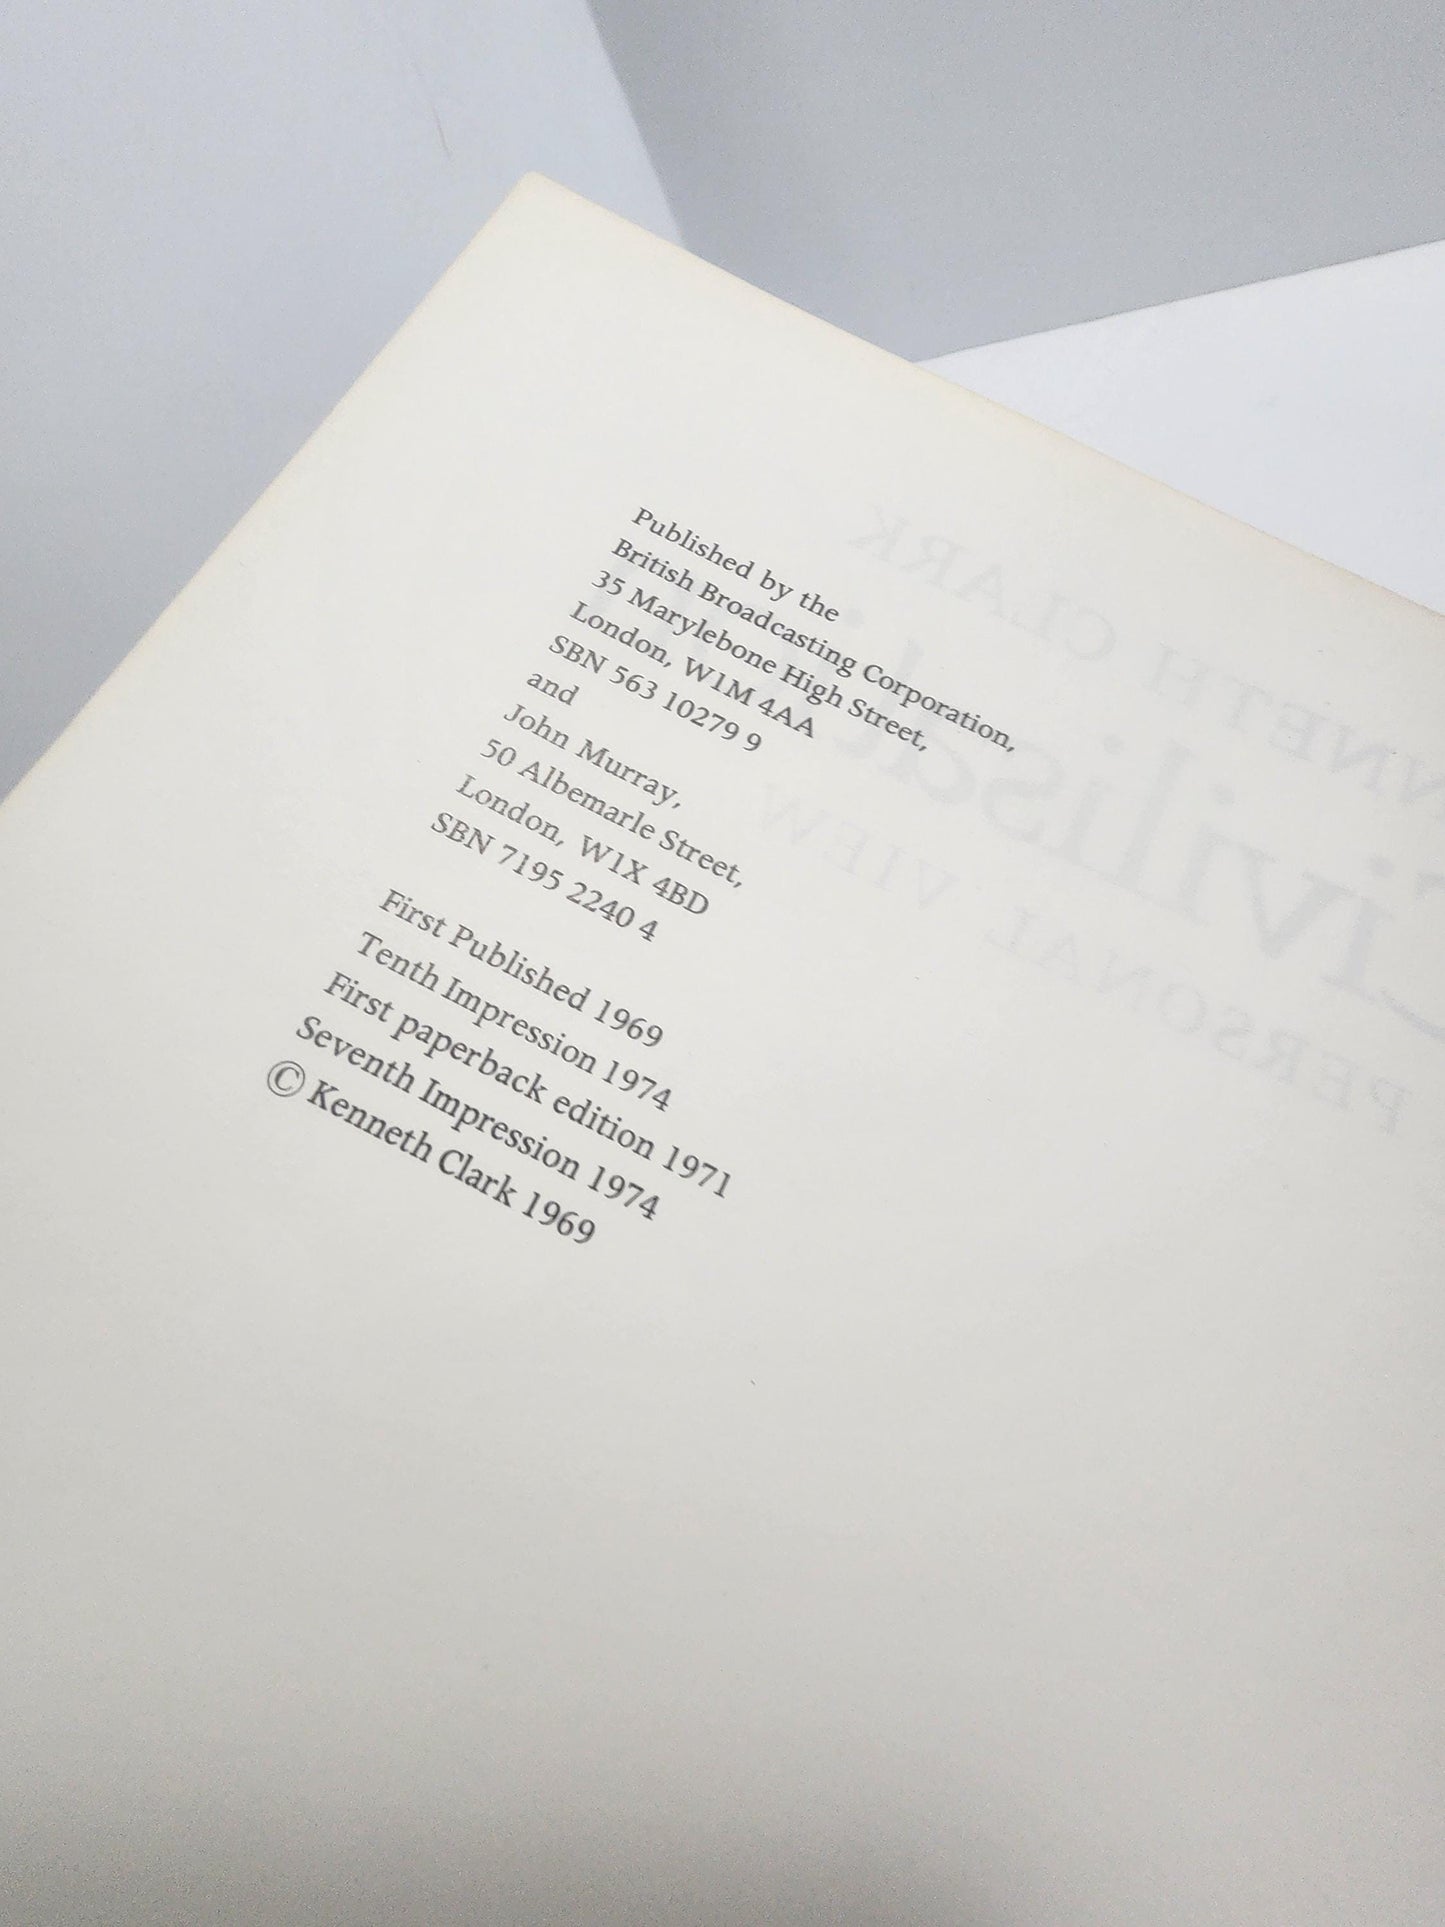 Published by the
British Broadcasting Corporation,
35 Marylebone High Street,
London, W1M 4AA
SBN 563 10279 9
and
John Murray,
50 Albemarle Street,
London, W1X 4BD
SBN 7195 2240 4
First Published 1969
Tenth Impression 1974
First paperback edition 1971
Seventh Impression 1974
© Kenneth Clark 1969